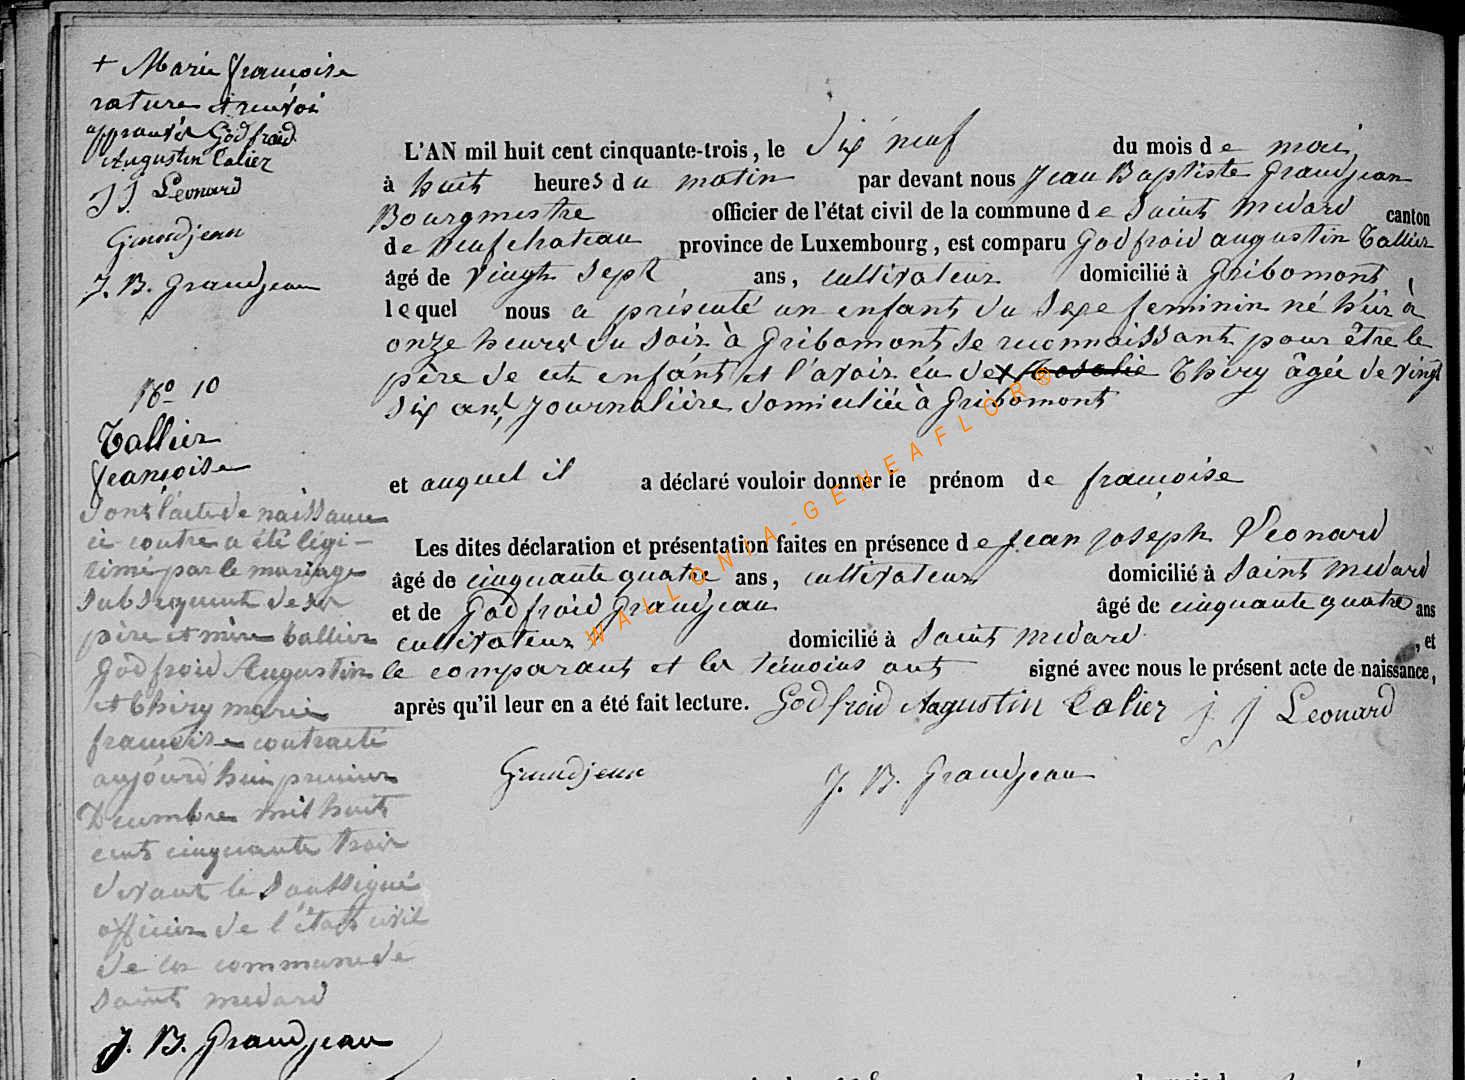 + Marie françoise
rature et renvoi
approuvés Godfroid
Augustin Talier
J J Leonard
Grandjean
J. B. Grandjean
N° 10
Tallier
françoise
dont l'acte de naissance
ci contre a été légi-
timé par le mariage
subséquent de ses
père et mère Tallier
Godfroid Augustin
et Thiry marie
françoise contracté
aujourd'hui premier
Decembre mil huit
cent cinquante trois
devant le Soussigné
officier de l'état civil
de la commune de
Saint medard
J. B. Grandjean
L'AN mil huit cent cinquante-trois, le dix neuf du mois de mai
à huit heures du matin par devant nous Jean Baptiste Grandjean
Bourgmestre officier de l'état civil de la commune de Saint medard canton
de Neufchateau province de Luxembourg, est comparu Godfroid augustin Tallier
âgé de vingt sept ans, cultivateur domicilié à Gribomont
lequel nous a présenté un enfant du sexe feminin né hier à
onze heures du soir à Gribomont se reconnaissant pour être le
père de cet enfant et l'avoir eu de + Rosalie Thiry âgée de vingt
six ans, Journalière domiciliée à Gribomont
et auquel il a déclaré vouloir donner le prénom de françoise
Les dites déclaration et présentation faites en présence de jean joseph Léonard
âgé de cinquante quatre ans, cultivateur domicilié à Saint medard
et de Godfroid Grandjean âgé de cinquante quatre ans
cultivateur domicilié à Saint medard , et
le comparant et les témoins ont signé avec nous le présent acte de naissance,
après qu'il leur en a été fait lecture. Godfroid Augustin Talier j J Leonard
Grandjean J. B. Grandjean
WALLONIA-GENEAFLOR®